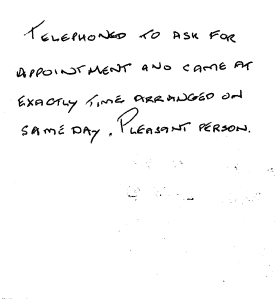 TELEPHONED TO ASK FOR
APPOINTMENT AND CAME AT
EXACTLY TIME ARRANGED ON
SAME DAY. PLEASANT PERSON.